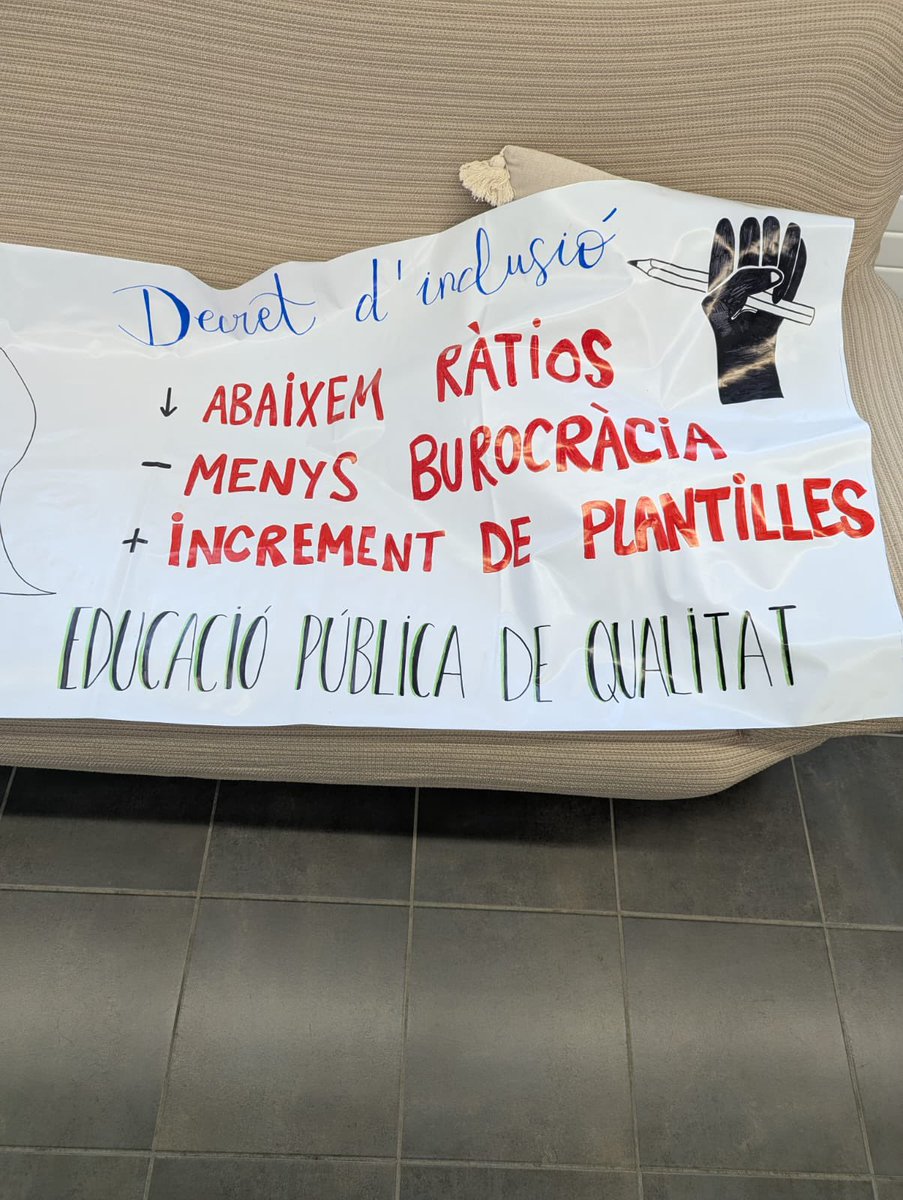 Decret d'inclusió
↓ ABAIXEM RÀTIOS
- MENYS BUROCRÀCIA
+ INCREMENT DE PLANTILLES
EDUCACIÓ PÚBLICA DE QUALITAT